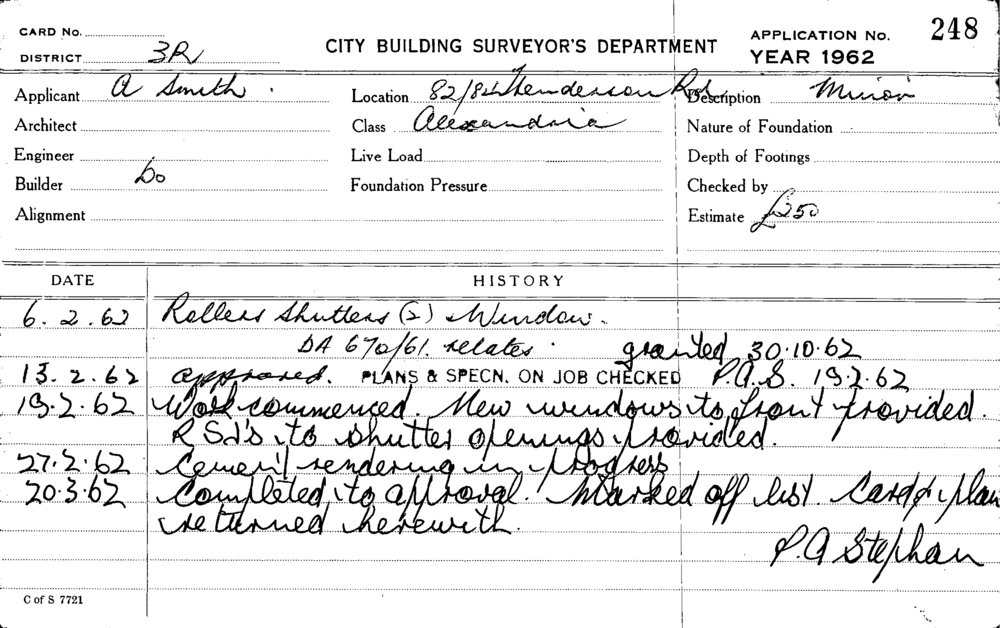 CARD No.
DISTRICT 3R
CITY BUILDING SURVEYOR'S DEPARTMENT
APPLICATION No. 248
YEAR 1962
Applicant A Smith.
Location 82/84 Henderson Rd
Description Minor
Architect
Class Alexandria
Nature of Foundation
Engineer
Live Load
Depth of Footings
Builder Do
Foundation Pressure
Checked by
Alignment
Estimate £250
DATE HISTORY
6.2.62 Rollers Shutters (2) & Window.
DA 670/61. relates. granted 30.10.62
13.2.62 approved. PLANS & SPECN. ON JOB CHECKED P.A.S. 19.2.62
19.2.62 Work commenced. New windows to front provided.
RSJ's to shutter openings provided.
27.2.62 Cement rendering in progress
20.3.62 Completed to approval. Marked off list. Card & plan
returned herewith.
P.A Stephan
C of S 7721